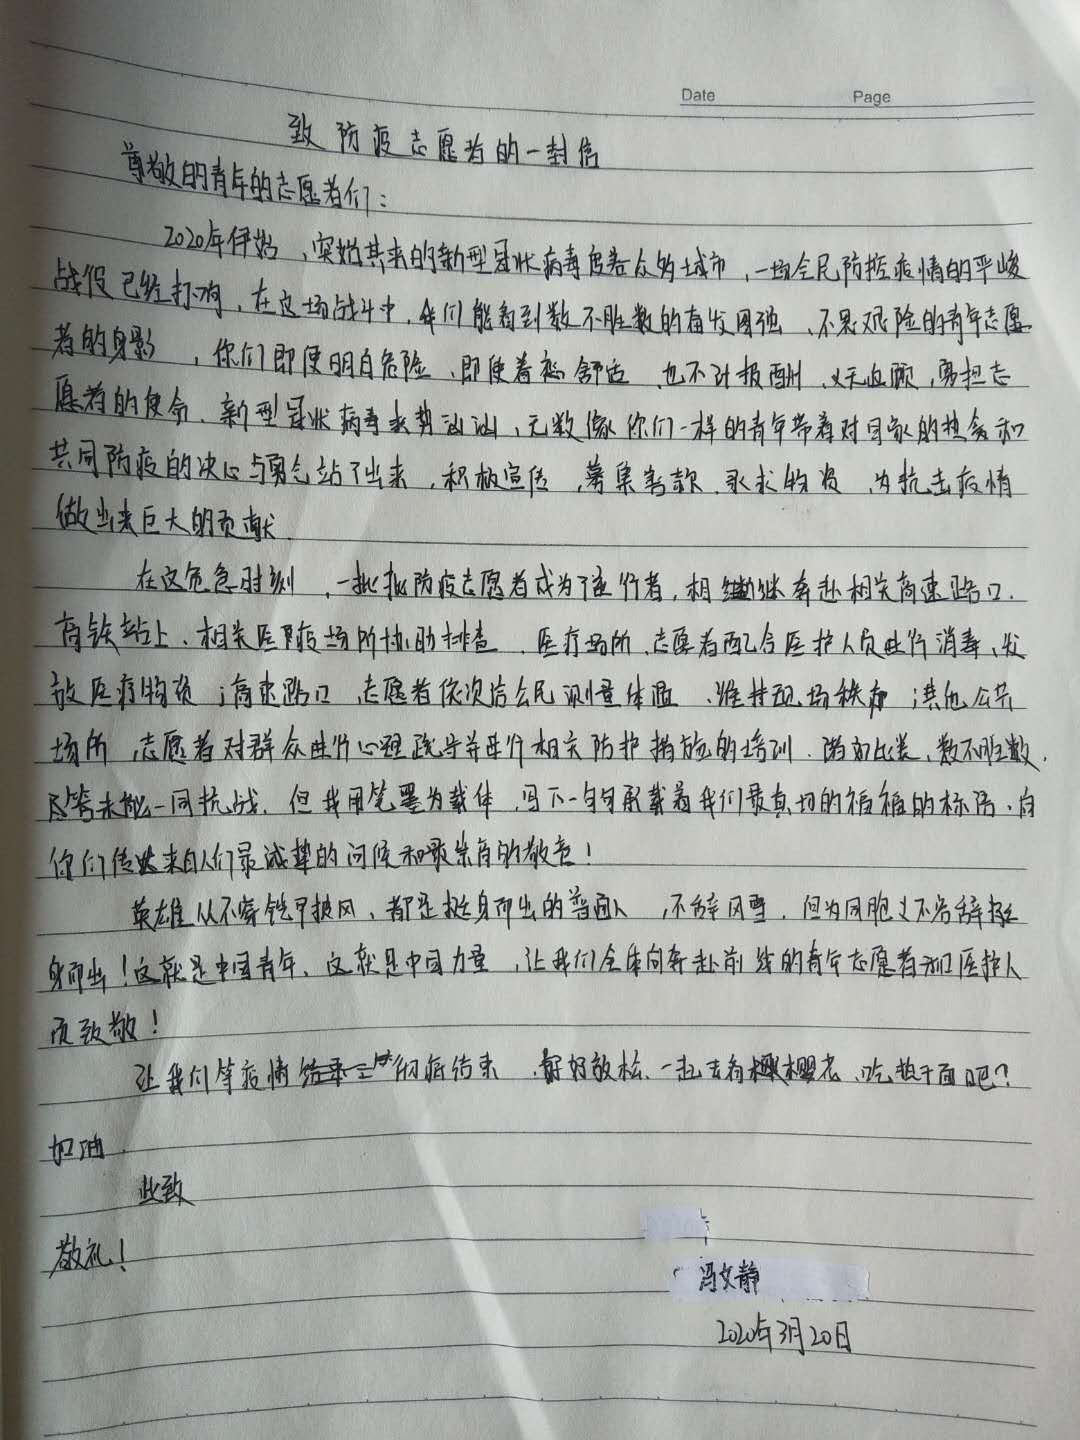 Date Page
致防疫志愿者的一封信
尊敬的青年的志愿者们：
2020年伊始，突如其来的新型冠状病毒席卷众多城市，一场全民防控疫情的严峻
战役已经打响，在这场战斗中，我们能看到数不胜数的奋发图强、不畏艰险的青年志愿
者的身影，你们即使明白危险、即使着 舒适、也不计报酬、义无反顾，勇担志
愿者的使命、新型冠状病毒来势汹汹，无数像你们一样的青年带着对国家的热 和
共同防疫的决心与勇气站了出来，积极宣传，募集善款、寻求物资，为抗击疫情
做出来巨大的贡献.
在这危急时刻，一批批防疫志愿者成为了逆行者，相继奔赴相关高速路口、
高铁站上、相关医院场所协助排查、医疗场所，志愿者配合医护人员进行消毒、发
放医疗物资；高速路口，志愿者依次给公民测量体温、维持现场秩序；其他公共
场所，志愿者对群众进行心理疏导并进行相关防护措施的培训、诸如此类，数不胜数.
尽管未能一同抗战，但我用笔墨为载体，写下一句句承载着我们最真切的祝福的标语，向
你们传达来自人们最诚挚的问候和最崇高的敬意！
英雄从不穿铠甲披风，都是挺身而出的普通人，不辞风雪，但为同胞义不容辞挺
身而出！这就是中国青年、这就是中国力量，让我们全体向奔赴前线的青年志愿者和医护人
员致敬！
让我们等疫情彻底结束，好好放松、一起去看樱花、吃热干面吧？
加油.
此致
敬礼！
冯文静
2020年3月20日